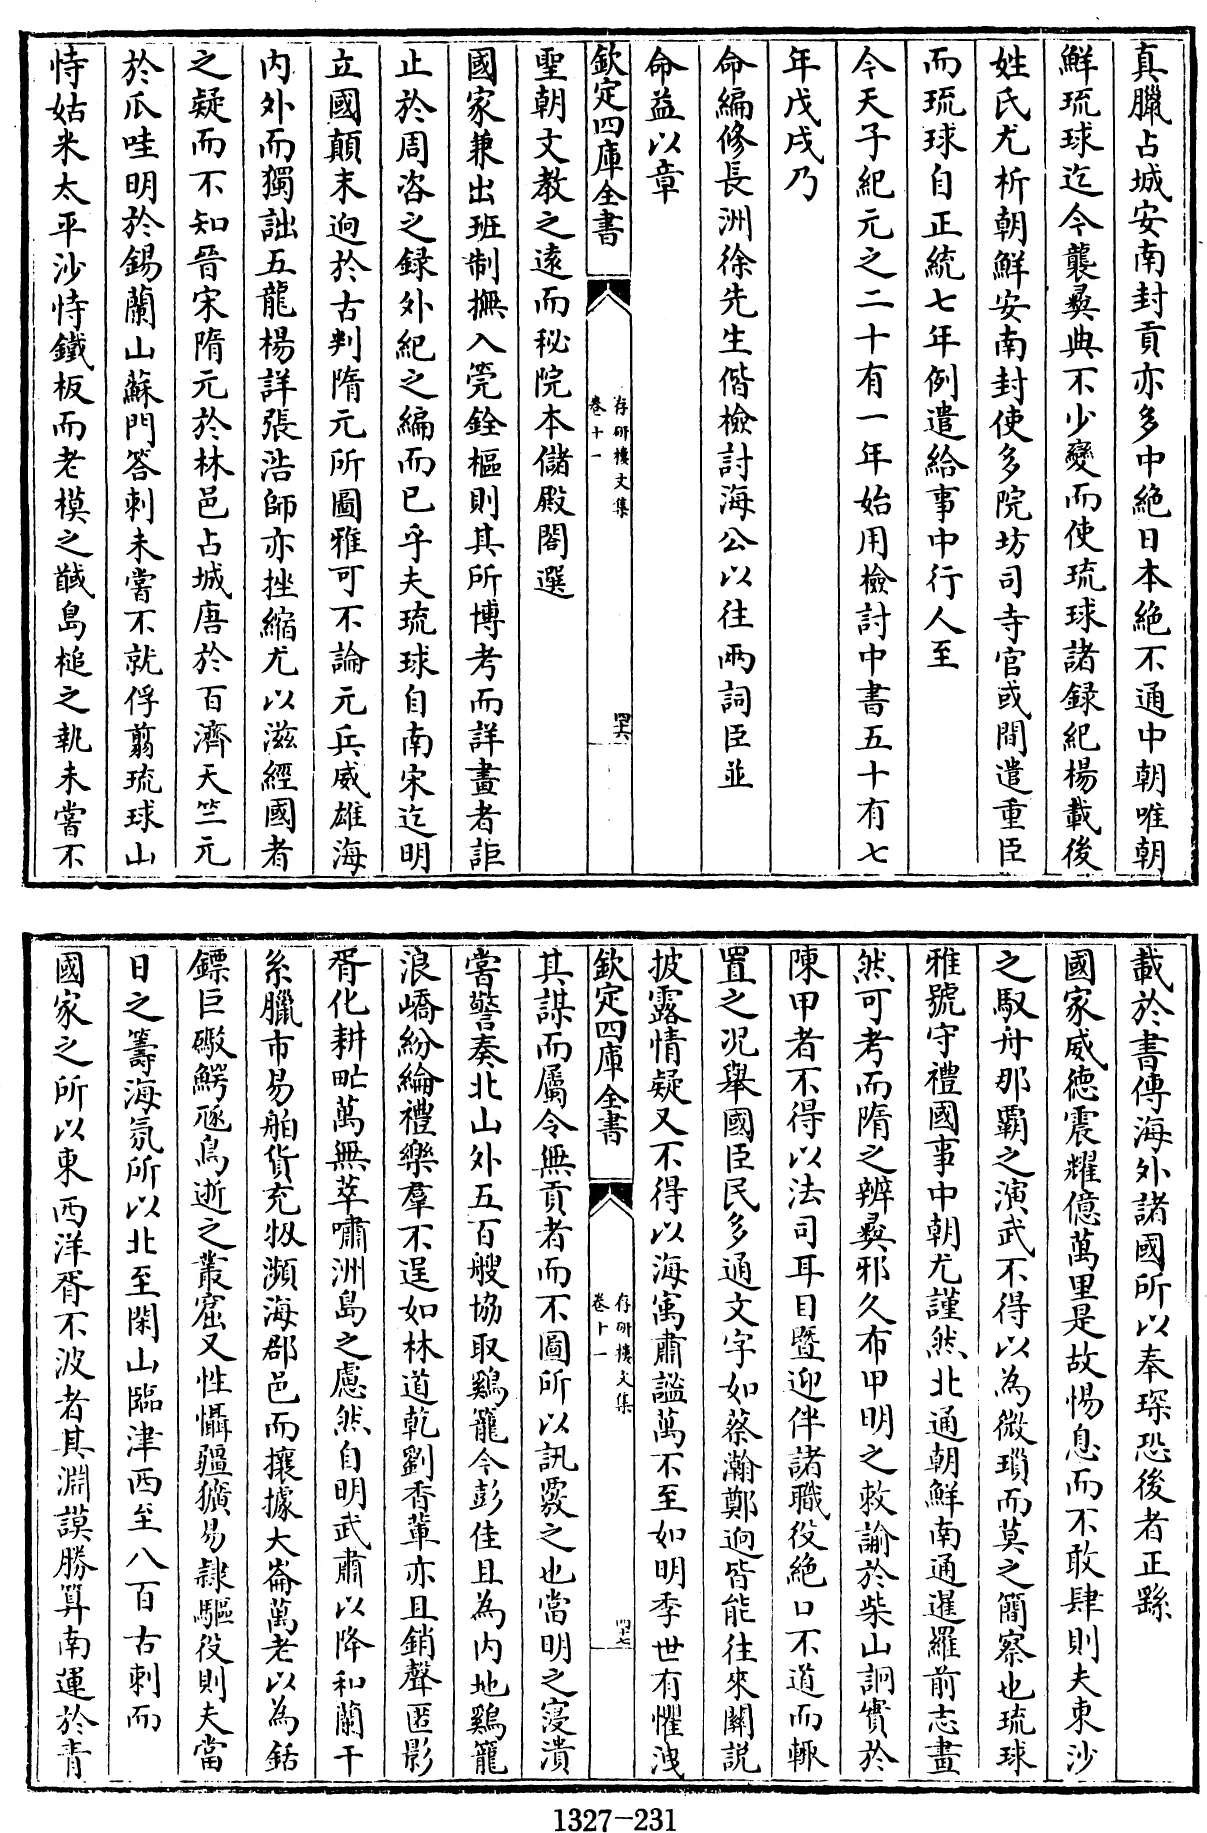 真臘占城安南封貢亦多中絶日本絶不通中朝唯朝
鮮琉球迄今襲彛典不少變而使琉球諸録紀楊載後
姓氏尤析朝鮮安南封使多院坊司寺官或間遣重臣
而琉球自正統七年例遣給事中行人至
今天子紀元之二十有一年始用檢討中書五十有七
年戊戌乃
命編修長洲徐先生偕檢討海公以往兩詞臣並
命益以章
欽定四庫全書
存研樓文集
卷十一
四十六
聖朝文教之遠而秘院本儲殿閣選
國家兼出班制撫入筦銓樞則其所博考而詳畫者詎
止於周咨之録外紀之編而已乎夫琉球自南宋迄明
立國顛末逈於古判隋元所圖雅可不論元兵威雄海
内外而獨詘五龍楊詳張浩師亦挫縮尤以滋經國者
之疑而不知晉宋隋元於林邑占城唐於百濟天竺元
於爪哇明於錫蘭山蘇門答刺未嘗不就俘翦琉球山
恃姑米太平沙恃鐵板而老模之馘島槌之執未嘗不
載於書傳海外諸國所以奉琛恐後者正繇
國家威德震耀億萬里是故惕息而不敢肆則夫東沙
之馭舟那覇之演武不得以為微瑣而莫之簡察也琉球
雅號守禮國事中朝尤謹然北通朝鮮南通暹羅前志畫
然可考而隋之辨彛邪久布甲明之敕諭於柴山詗實於
陳甲者不得以法司耳目曁迎伴諸職役絶口不道而輙
置之况舉國臣民多通文字如蔡瀚鄭逈皆能往來闗説
披露情疑又不得以海寓肅謐萬不至如明季世有懼洩
欽定四庫全書
存研樓文集
卷十一
四十七
其謀而屬令無貢者而不圖所以訊覈之也當明之寖潰
嘗警奏北山外五百艘協取鷄籠今彭佳且為内地鷄籠
浪嶠紛綸禮樂羣不逞如林道乾劉香輩亦且銷聲匿影
胥化耕甿萬無萃嘯洲島之慮然自明武肅以降和蘭干
系臘市易舶貨充牣瀕海郡邑而攘據大崙萬老以為銛
鏢巨礮鰐𢓜鳥逝之叢窟又性懾疆獷易隷驅役則夫當
日之籌海氛所以北至閑山臨津西至八百古刺而
國家之所以東西洋胥不波者其淵謨勝算南運於青
1327-231